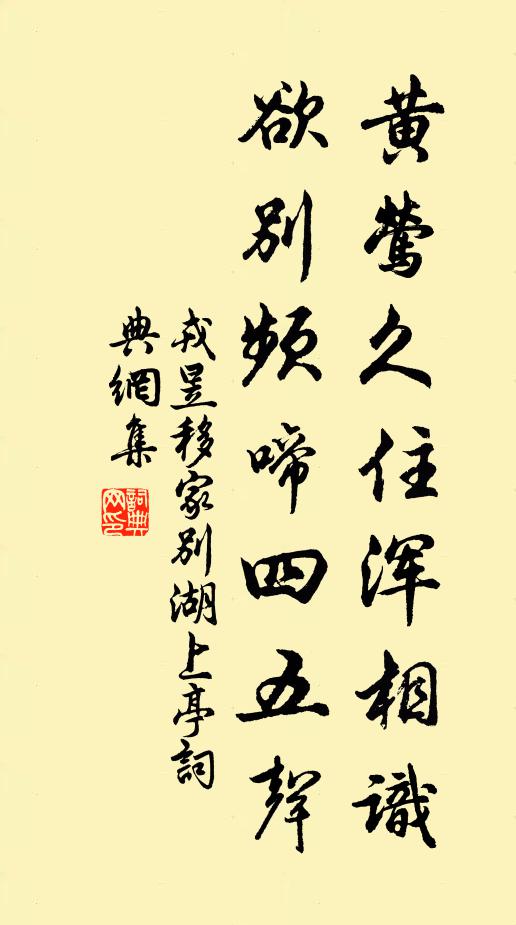 黄莺久住浑相識
欲别频啼四五聲
戎昱移家别湖上亭詞
典網集
詞典
网印